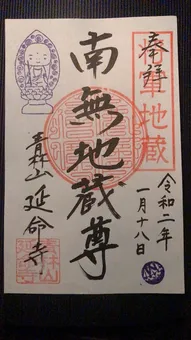 奉拝
地蔵
令和二年
一月十八日
南無地蔵尊
青林山 延命寺